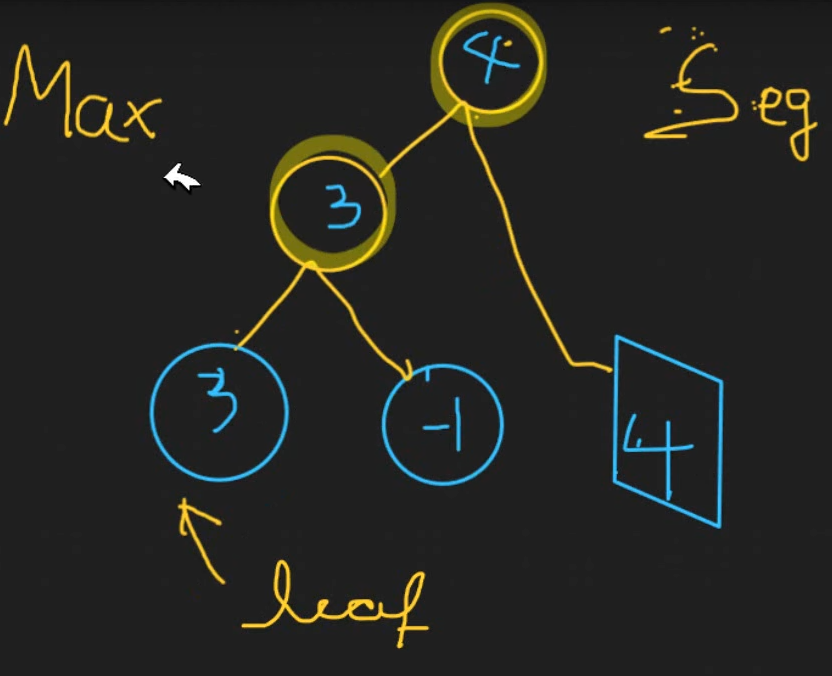 4
Max
Seg
3
3
-1
4
leaf